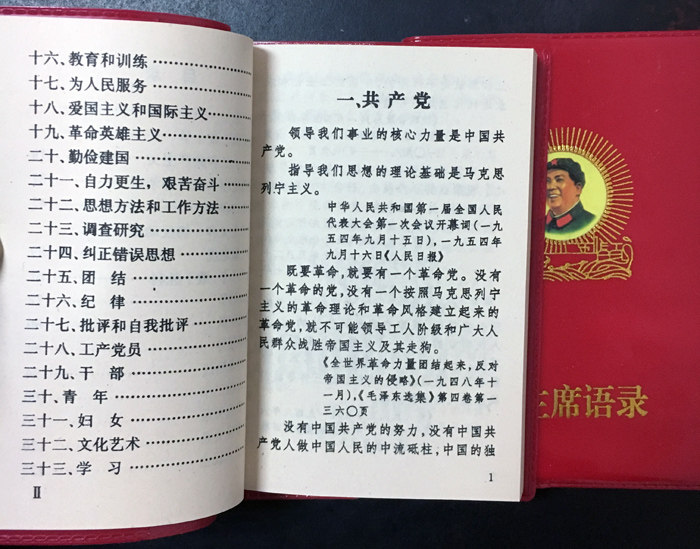 十六、教育和训练
十七、为人民服务
十八、爱国主义和国际主义
十九、革命英雄主义
二十、勤俭建国
二十一、自力更生，艰苦奋斗
二十二、思想方法和工作方法
二十三、调查研究
二十四、纠正错误思想
二十五、团 结
二十六、纪 律
二十七、批评和自我批评
二十八、工产党员
二十九、干 部
三十、青 年
三十一、妇 女
三十二、文化艺术
三十三、学 习
II
一、共产党
领导我们事业的核心力量是中国共
产党。
指导我们思想的理论基础是马克思
列宁主义。
中华人民共和国第一届全国人民
代表大会第一次会议开幕词(一
九五四年九月十五日),一九五四年
九月十六日《人民日报》
既要革命,就要有一个革命党。没有
一个革命的党,没有一个按照马克思列宁
主义的革命理论和革命风格建立起来的
革命党,就不可能领导工人阶级和广大人
民群众战胜帝国主义及其走狗。
《全世界革命力量团结起来,反对
帝国主义的侵略》(一九四八年十
一月),《毛泽东选集》第四卷第一
三六〇页
没有中国共产党的努力,没有中国共
产党人做中国人民的中流砥柱,中国的独
1
主席语录